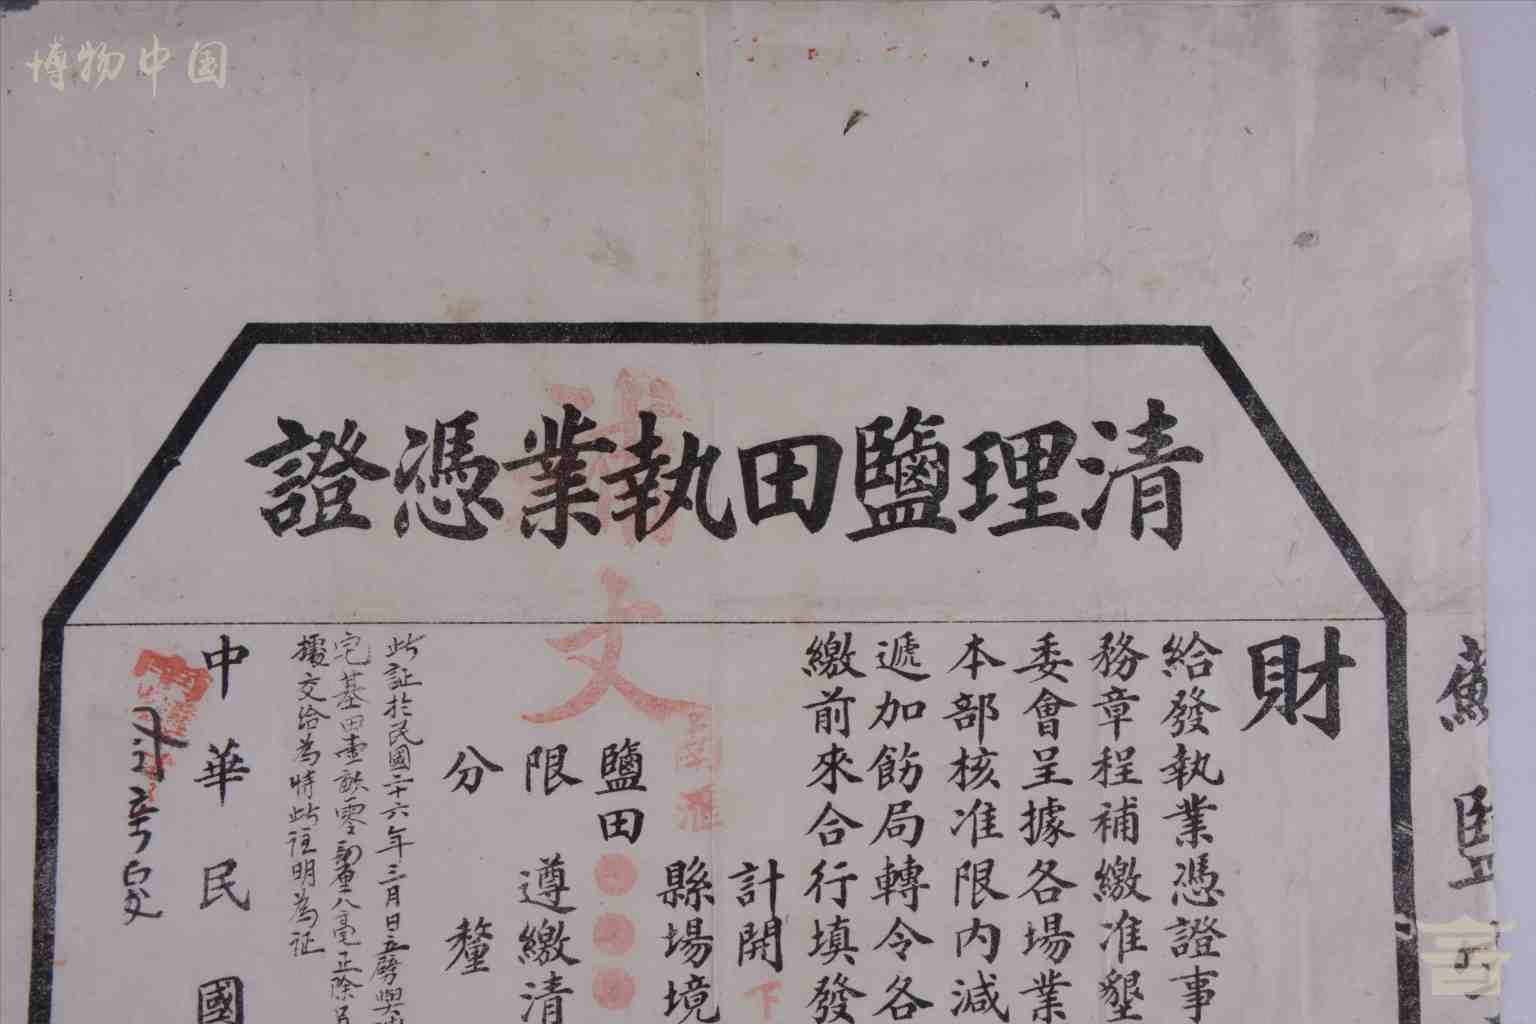 博物中国
清理鹽田執業憑證
蘇鹽
財
給發執業憑證事
務章程補繳准墾
委會呈據各場業
本部核准限內減
遞加飭局轉令各
繳前來合行填發
計開 下
縣場境
南滙
鹽田
限 遵繳清
分 釐
此証於民國二十六年三月日立
宅基田壹畝零 八毫正除
據文給為特此註明為証
中華民國